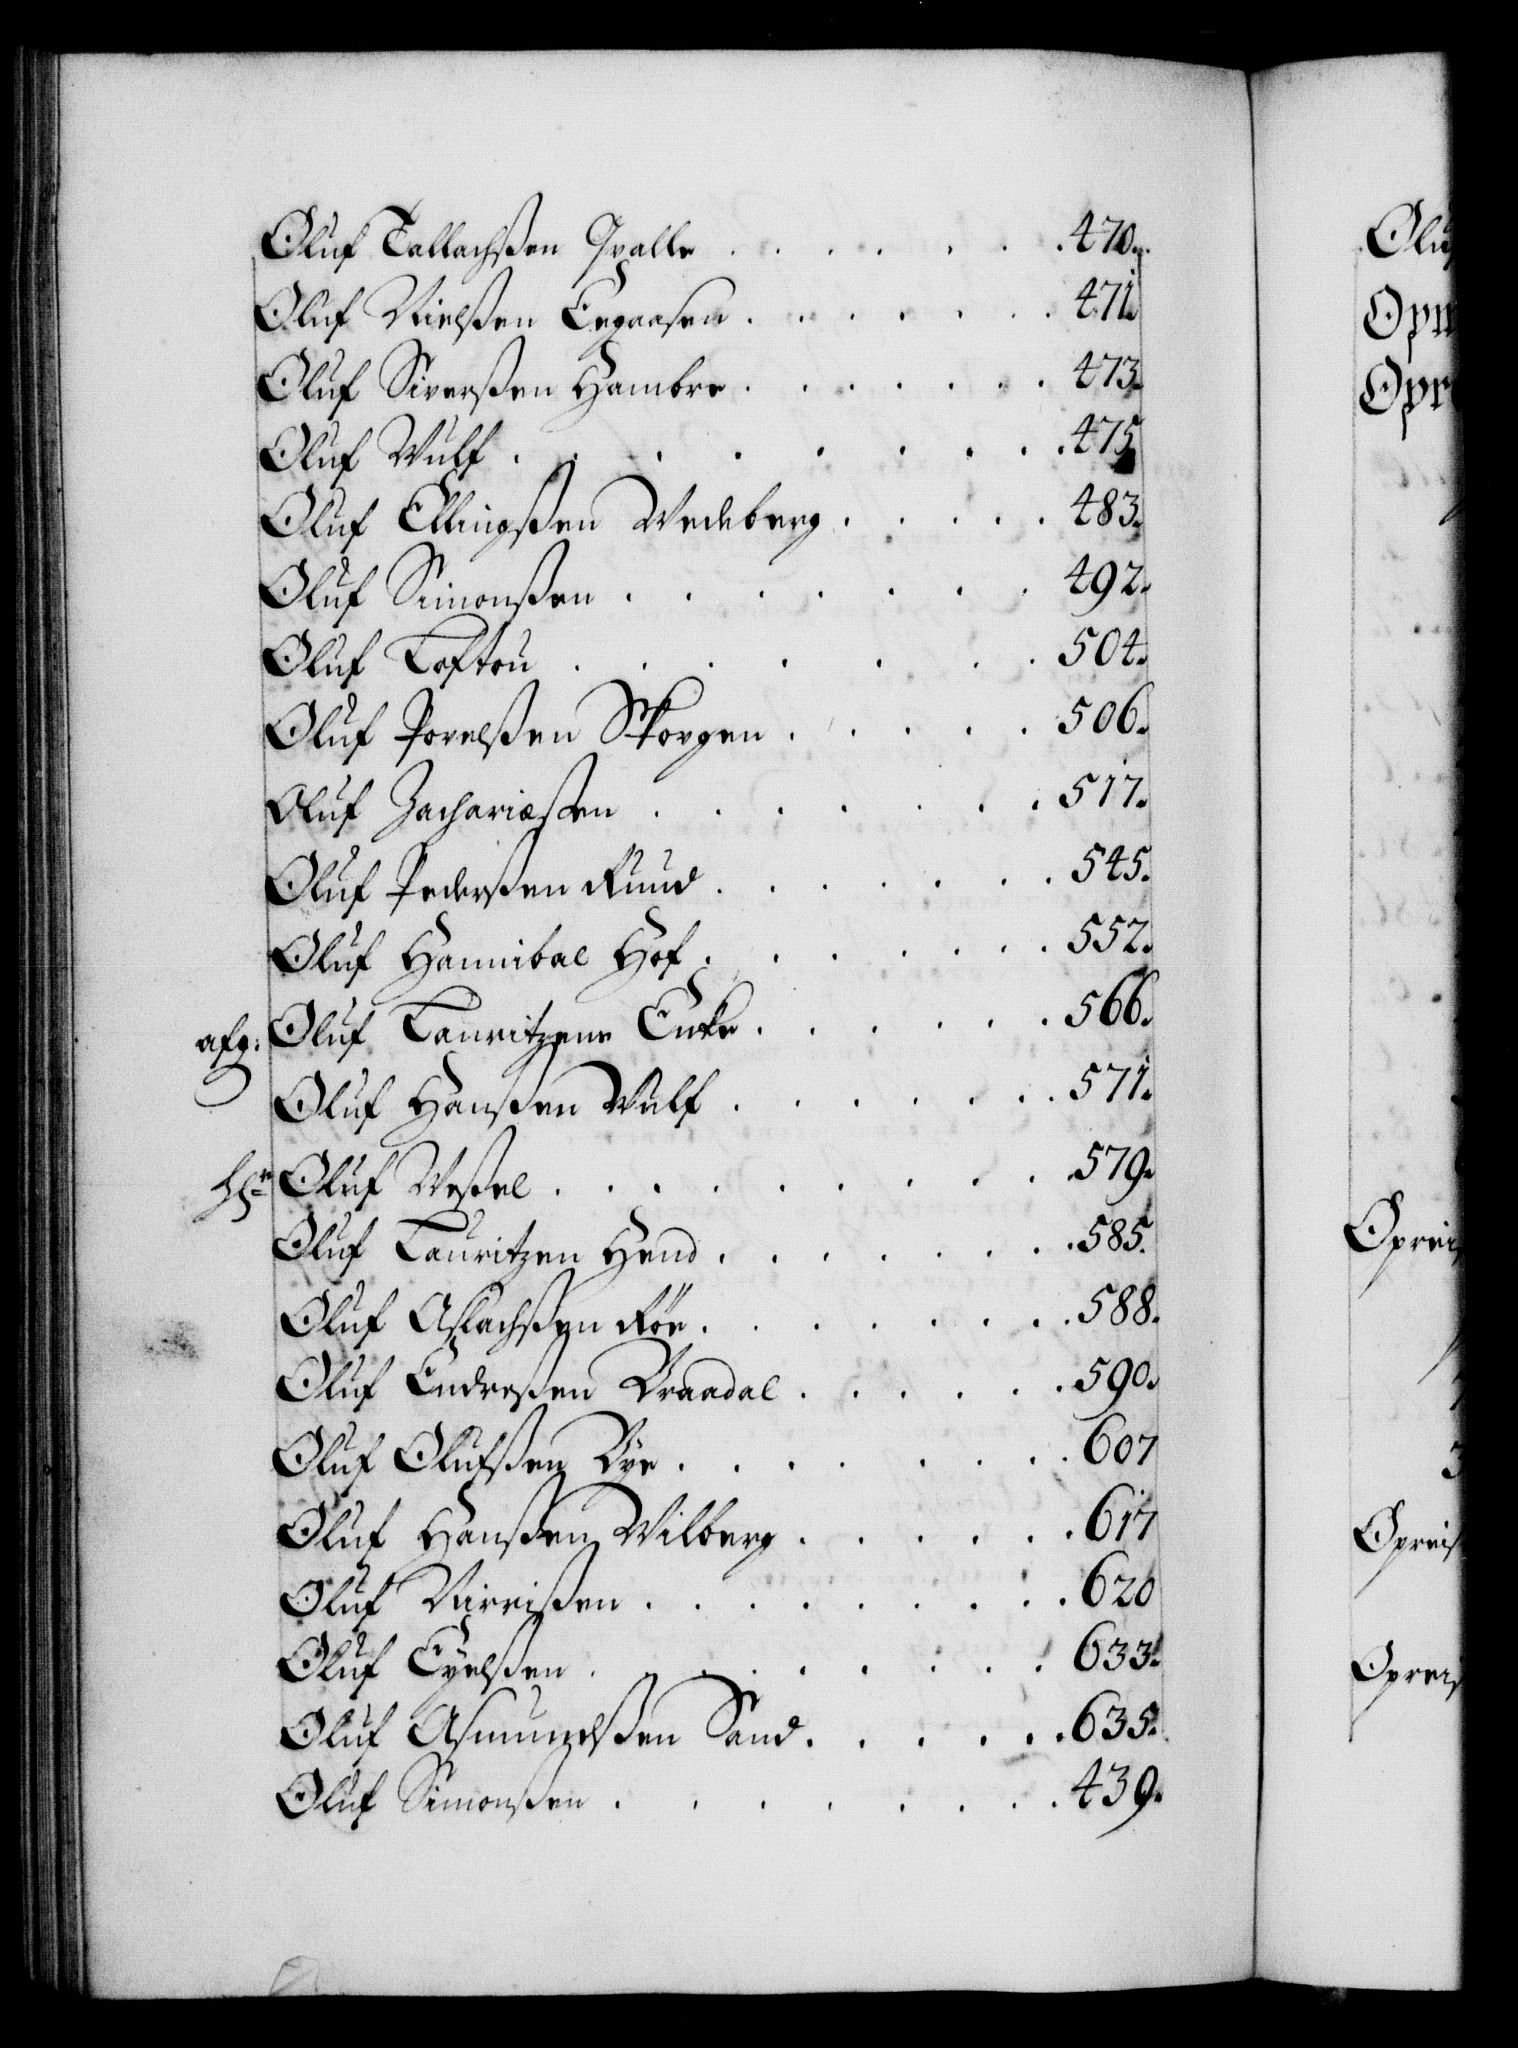 Oluf Tallachßen Qvalle . . . . . . . 470.
Oluf Nielßen Eegaasen . . . . . . . 471.
Oluf Siverßen Hambre . . . . . . . 473.
Oluf Wulf . . . . . . . . . 475
Oluf Ellingßen Wedeberg . . . . . 483.
Oluf Simonßen . . . . . . . 492.
Oluf Toftou . . . . . . . 504.
Oluf Povelßen Skorgen . . . . . 506.
Oluf Zachariæßen . . . . . . 517.
Oluf Pederßen Ruud . . . . . . 545.
Oluf Hannibal Hof . . . . . . 552.
afg: Oluf Lauritzens Enke . . . . . . 566.
Oluf Hanßen Wulf . . . . . . 571.
Hr Oluf Weßel . . . . . . . . 579.
Oluf Lauritzen Hend . . . . . . . 585.
Oluf Aslachßen Röe . . . . . . . 588.
Oluf Endreßen Braadal . . . . . . 590.
Oluf Olufßen Rye . . . . . . . . 607
Oluf Hanßen Wilberg . . . . . . 617
Oluf Nirrißen . . . . . . . . . 620
Oluf Eyelßen . . . . . . . . 633.
Oluf Asmundßen Sand . . . . . . 635.
Oluf Simonßen . . . . . . . . 439.